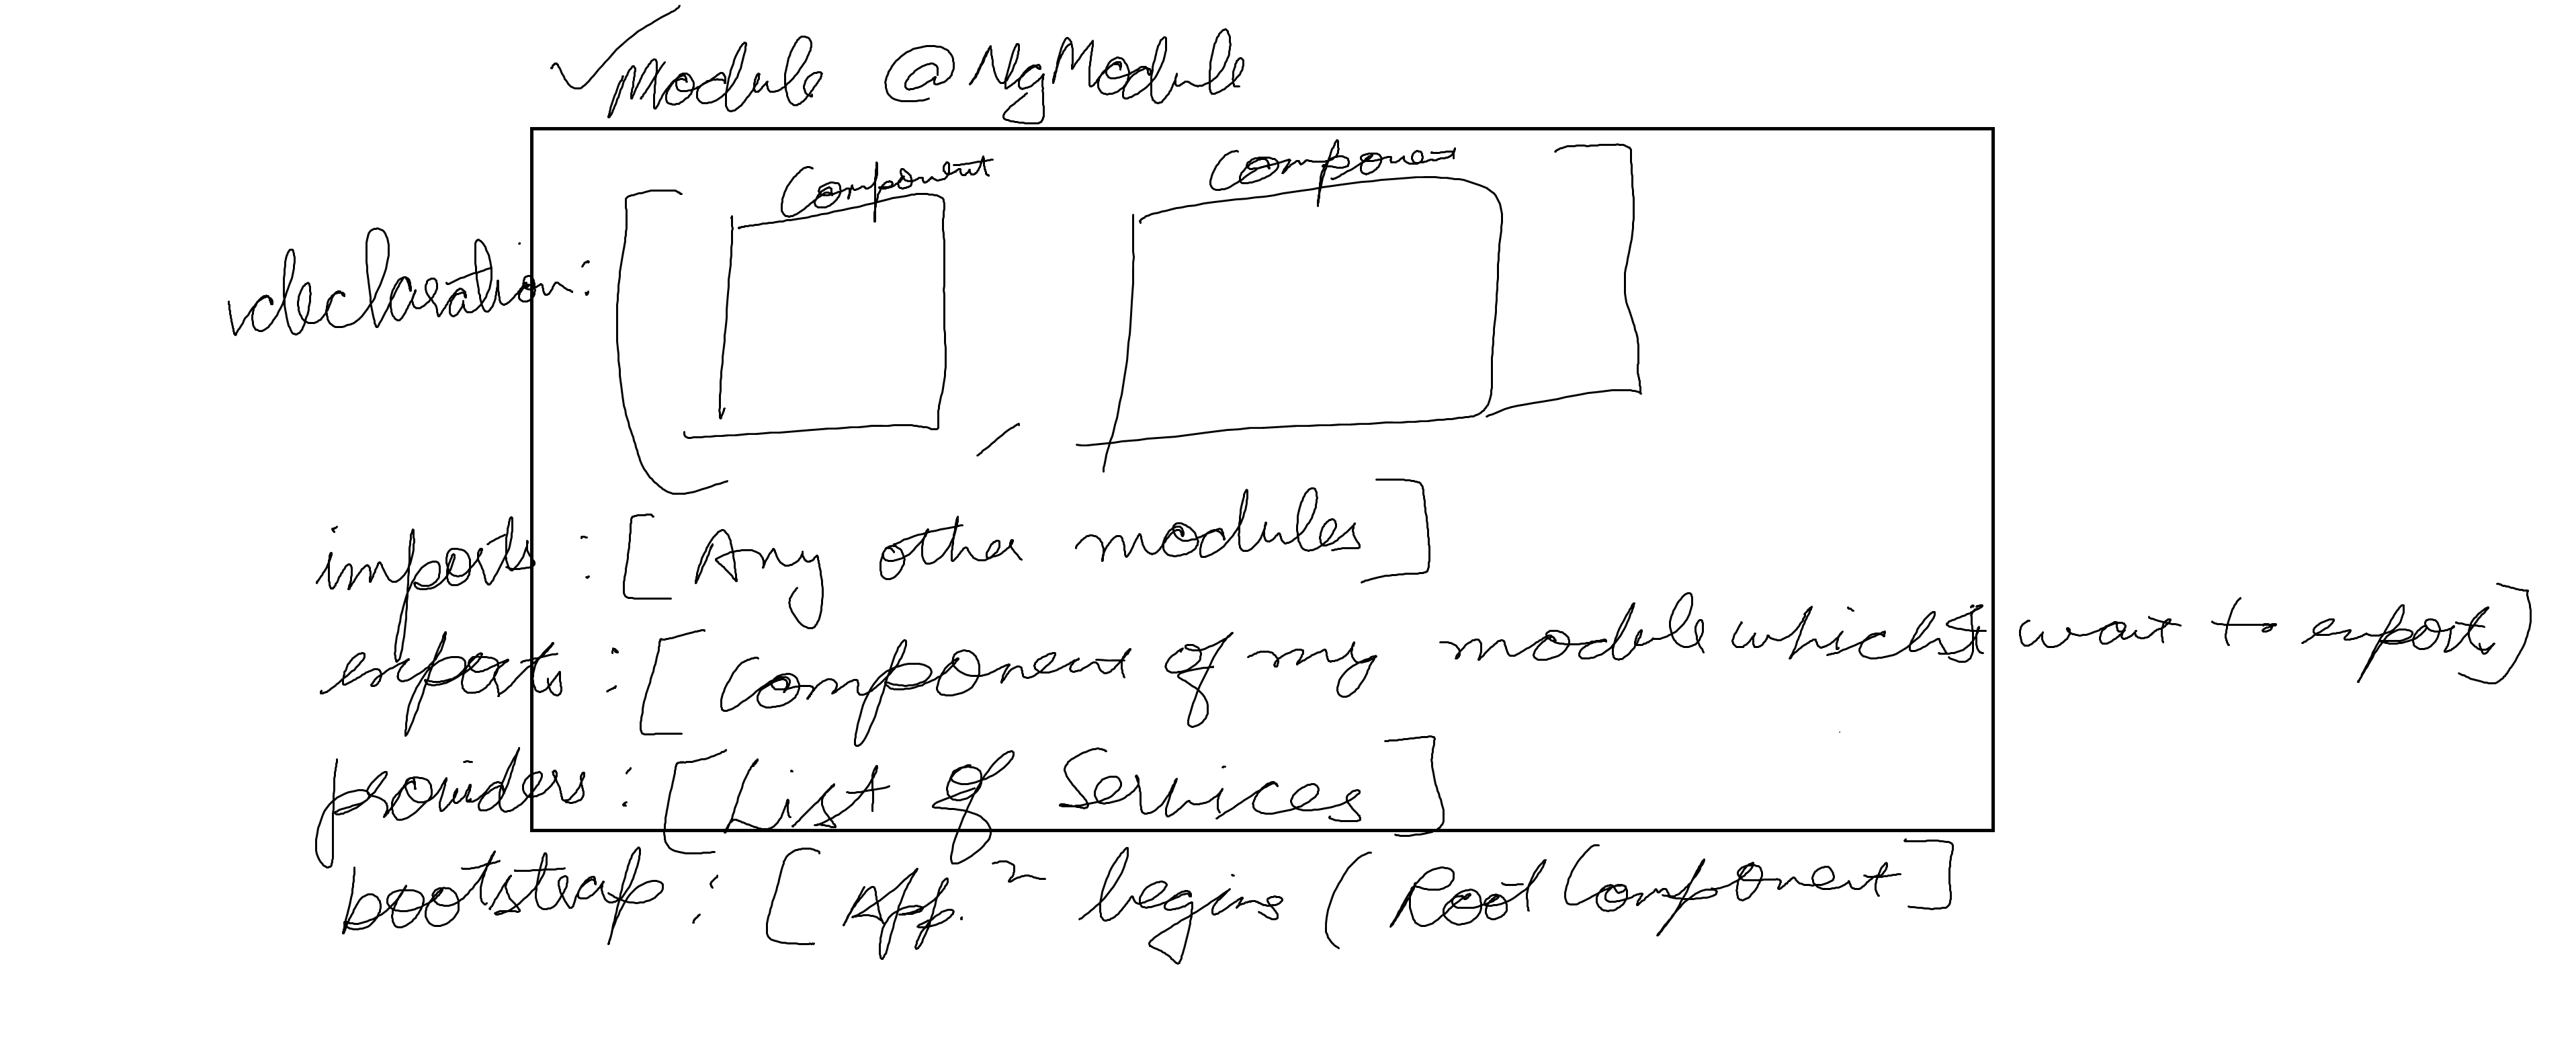 Module @NgModule
Component Component
declaration:
imports : [ Any other modules ]
exports : [ Component of my module which I want to export ]
providers : [ List of Services ]
bootstrap : [ App.n begins ( Root Component ]